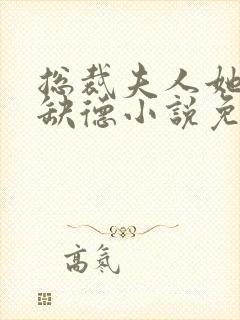 总裁夫人她
缺德小说免
高氣